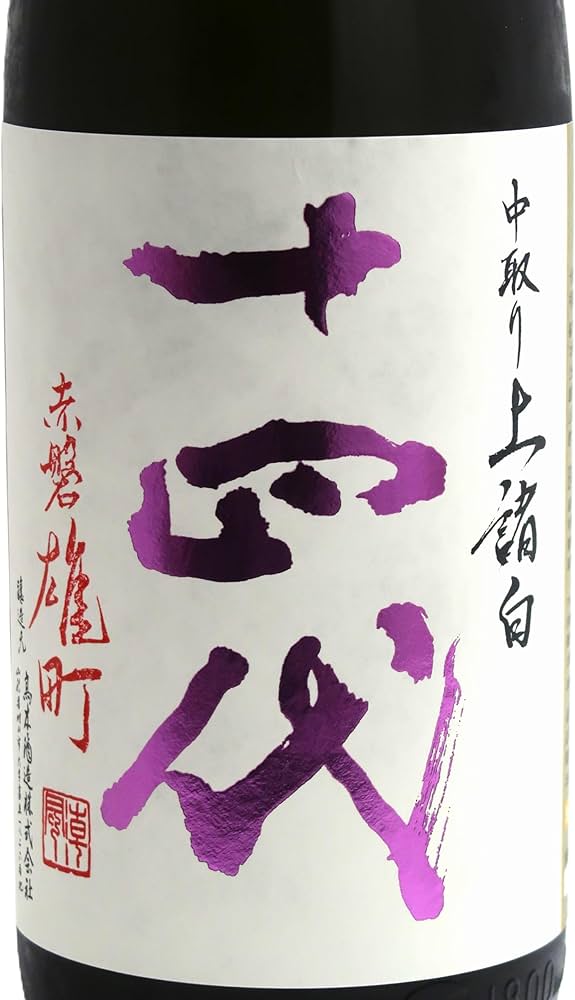 中取り上諸白
十四代
赤磐雄町
醸造元 高木酒造株式会社
1800